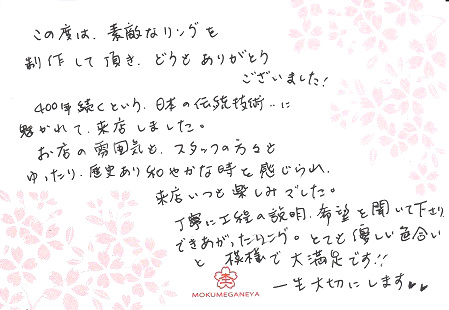 この度は、素敵なリングを
制作して頂き、どうもありがとう
ございました!
400年続くという、日本の伝統技術…に
惹かれて、来店しました。
お店の雰囲気と、スタッフの方々と
ゆったり、歴史あり和やかな時を感じられ、
来店いつも楽しみでした。
丁寧に工程の説明、希望を聞いて下さり
できあがったリング。とても優しい色合い
と 模様で大満足です!!
一生大切にします♥♥
MOKUMEGANEYA